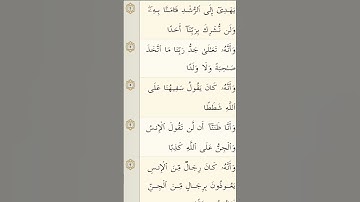 يَهْدِىٓ إِلَى ٱلرُّشْدِ فَـَٔامَنَّا بِهِۦ ۖ
وَلَن نُّشْرِكَ بِرَبِّنَآ أَحَدًا
وَأَنَّهُۥ تَعَـٰلَىٰ جَدُّ رَبِّنَا مَا ٱتَّخَذَ
صَـٰحِبَةً وَلَا وَلَدًا
وَأَنَّهُۥ كَانَ يَقُولُ سَفِيهُنَا عَلَى
ٱللَّهِ شَطَطًا
وَأَنَّا ظَنَنَّآ أَن لَّن تَقُولَ ٱلْإِنسُ
وَٱلْجِنُّ عَلَى ٱللَّهِ كَذِبًا
وَأَنَّهُۥ كَانَ رِجَالٌ مِّنَ ٱلْإِنسِ
يَعُوذُونَ بِرِجَالٍ مِّنَ ٱلْجِنِّ